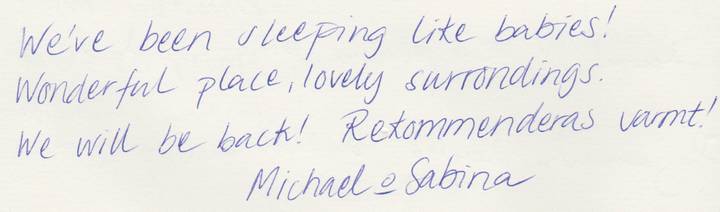 We've been sleeping like babies!
Wonderful place, lovely surrondings.
We will be back! Rekommenderas varmt!
Michael o Sabina